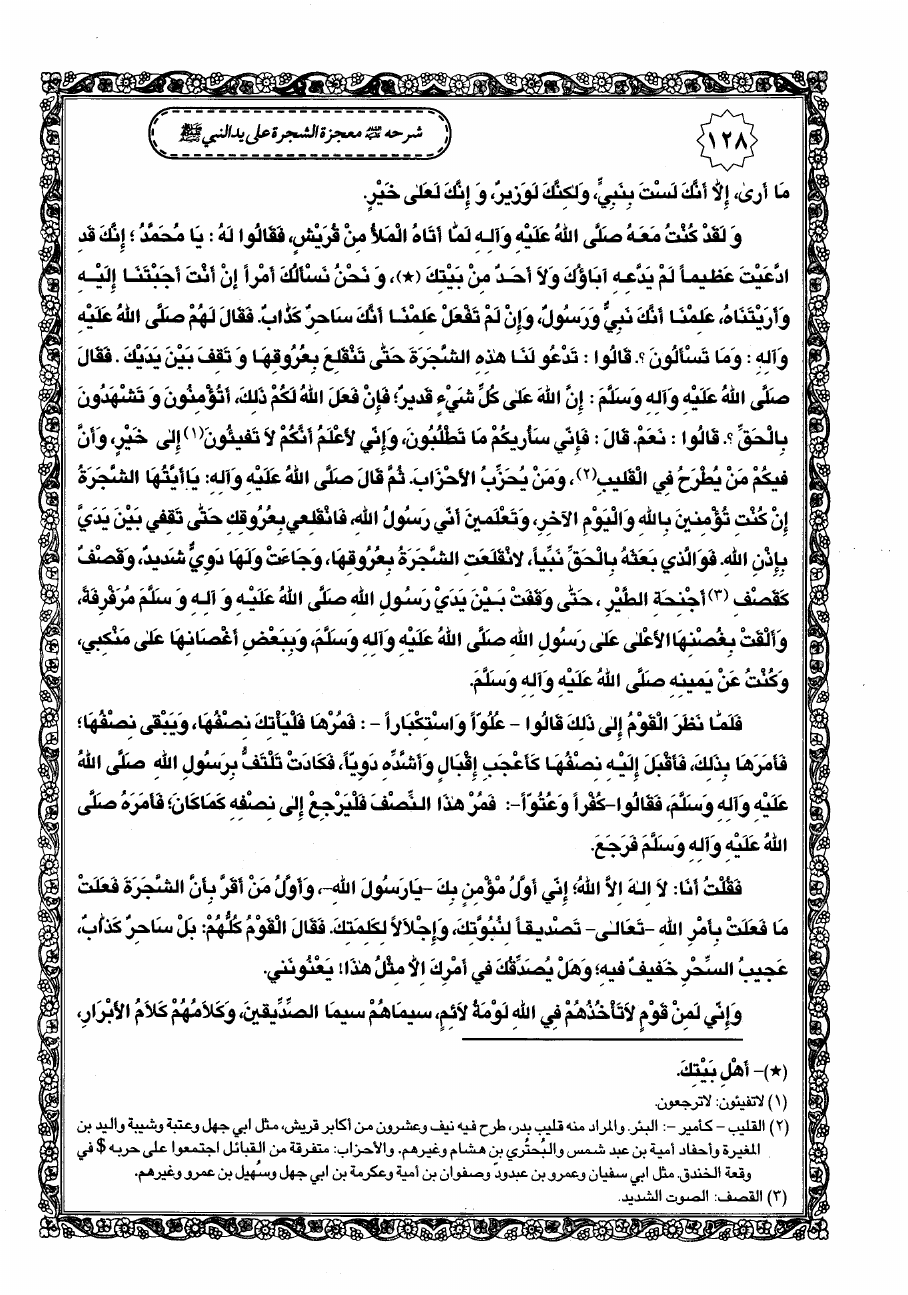 ١٢٨
شرحه ﷺ معجزة الشجرة على يد النبي ﷺ
مَا أرىٰ، إلاَّ أنَّكَ لَسْتَ بِنَبِيٍّ، وَلٰكِنَّكَ لَوَزِيرٌ، وَ إنَّكَ لَعَلىٰ خَيْرٍ.
وَ لَقَدْ كُنْتُ مَعَهُ صَلَّى اللهُ عَلَيْهِ وَآلِهِ لَمَّا أتَاهُ الْمَلأُ مِنْ قُرَيْشٍ، فَقَالُوا لَهُ: يَا مُحَمَّدُ؛ إنَّكَ قَدِ
ادَّعَيْتَ عَظِيماً لَمْ يَدَّعِهِ آبَاؤُكَ وَلاَ أحَدٌ مِنْ بَيْتِكَ (★)، وَ نَحْنُ نَسْألُكَ أمْراً إنْ أنْتَ أجَبْتَنَا إلَيْهِ
وَأرَيْتَنَاهُ، عَلِمْنَا أنَّكَ نَبِيٌّ وَرَسُولٌ، وَإنْ لَمْ تَفْعَلْ عَلِمْنَا أنَّكَ سَاحِرٌ كَذَّابٌ. فَقَالَ لَهُمْ صَلَّى اللهُ عَلَيْهِ
وَآلِهِ: وَمَا تَسْألُونَ؟. قَالُوا: تَدْعُو لَنَا هٰذِهِ الشَّجَرَةَ حَتَّى تَنْقَلِعَ بِعُرُوقِهَا وَ تَقِفَ بَيْنَ يَدَيْكَ. فَقَالَ
صَلَّى اللهُ عَلَيْهِ وَآلِهِ وَسَلَّمَ: إنَّ اللهَ عَلىٰ كُلِّ شَيْءٍ قَدِيرٌ؛ فَإنْ فَعَلَ اللهُ لَكُمْ ذٰلِكَ، أتُؤْمِنُونَ وَ تَشْهَدُونَ
بِالْحَقِّ؟. قَالُوا: نَعَمْ. قَالَ: فَإنِّي سَأُرِيكُمْ مَا تَطْلُبُونَ، وَإنِّي لأعْلَمُ أنَّكُمْ لاَ تَفِيئُونَ(١) إلىٰ خَيْرٍ، وَأنَّ
فِيكُمْ مَنْ يُطْرَحُ فِي الْقَلِيبِ(٢)، وَمَنْ يُحَزِّبُ الأحْزَابَ. ثُمَّ قَالَ صَلَّى اللهُ عَلَيْهِ وَآلِهِ: يَاأيَّتُهَا الشَّجَرَةُ
إنْ كُنْتِ تُؤْمِنِينَ بِاللهِ وَالْيَوْمِ الآخِرِ، وَتَعْلَمِينَ أنِّي رَسُولُ اللهِ، فَانْقَلِعِي بِعُرُوقِكِ حَتَّى تَقِفِي بَيْنَ يَدَيَّ
بِإذْنِ اللهِ. فَوَالَّذِي بَعَثَهُ بِالْحَقِّ نَبِيّاً، لانْقَلَعَتِ الشَّجَرَةُ بِعُرُوقِهَا، وَجَاءَتْ وَلَهَا دَوِيٌّ شَدِيدٌ، وَقَصْفٌ
كَقَصْفِ (٣) أجْنِحَةِ الطَّيْرِ، حَتَّى وَقَفَتْ بَيْنَ يَدَيْ رَسُولِ اللهِ صَلَّى اللهُ عَلَيْهِ وَ آلِهِ وَ سَلَّمَ مُرَفْرِفَةً،
وَألْقَتْ بِغُصْنِهَا الأعْلىٰ عَلىٰ رَسُولِ اللهِ صَلَّى اللهُ عَلَيْهِ وَآلِهِ وَسَلَّمَ، وَبِبَعْضِ أغْصَانِهَا عَلىٰ مَنْكِبِي،
وَكُنْتُ عَنْ يَمِينِهِ صَلَّى اللهُ عَلَيْهِ وَآلِهِ وَسَلَّمَ.
فَلَمَّا نَظَرَ الْقَوْمُ إلىٰ ذٰلِكَ قَالُوا – عُلُوّاً وَاسْتِكْبَاراً –: فَمُرْهَا فَلْيَأْتِكَ نِصْفُهَا، وَيَبْقىٰ نِصْفُهَا؛
فَأمَرَهَا بِذٰلِكَ، فَأقْبَلَ إلَيْهِ نِصْفُهَا كَأعْجَبِ إقْبَالٍ وَأشَدِّهِ دَوِيّاً، فَكَادَتْ تَلْتَفُّ بِرَسُولِ اللهِ صَلَّى اللهُ
عَلَيْهِ وَآلِهِ وَسَلَّمَ، فَقَالُوا–كُفْراً وَعُتُوّاً–: فَمُرْ هٰذَا النِّصْفَ فَلْيَرْجِعْ إلىٰ نِصْفِهِ كَمَاكَانَ؛ فَأمَرَهُ صَلَّى
اللهُ عَلَيْهِ وَآلِهِ وَسَلَّمَ فَرَجَعَ.
فَقُلْتُ أنَا: لاَ الٰهَ الاَّ اللهُ؛ إنِّي أوَّلُ مُؤْمِنٍ بِكَ –يَارَسُولَ اللهِ–، وَأوَّلُ مَنْ أقَرَّ بِأنَّ الشَّجَرَةَ فَعَلَتْ
مَا فَعَلَتْ بِأمْرِ اللهِ –تَعَالىٰ– تَصْدِيقاً لِنُبُوَّتِكَ، وَإجْلاَلاً لِكَلِمَتِكَ. فَقَالَ الْقَوْمُ كُلُّهُمْ: بَلْ سَاحِرٌ كَذَّابٌ،
عَجِيبُ السِّحْرِ خَفِيفٌ فِيهِ؛ وَهَلْ يُصَدِّقُكَ فِي أمْرِكَ الاَّ مِثْلُ هٰذَا! يَعْنُونَنِي.
وَإنِّي لَمِنْ قَوْمٍ لاَتَأْخُذُهُمْ فِي اللهِ لَوْمَةُ لاَئِمٍ، سِيمَاهُمْ سِيمَا الصِّدِّيقِينَ، وَكَلاَمُهُمْ كَلاَمُ الأبْرَارِ،
(★)– أهْلِ بَيْتِكَ.
(١) لاتفيئون: لاترجعون.
(٢) القليب – كأمير –: البئر. والمراد منه قليب بدر، طرح فيه نيف وعشرون من أكابر قريش، مثل ابي جهل وعتبة وشيبة واليد بن
المغيرة وأحفاد أمية بن عبد شمس والبُحتُري بن هشام وغيرهم. والأحزاب: متفرقة من القبائل اجتمعوا على حربه $ في
وقعة الخندق. مثل ابي سفيان وعمرو بن عبدودّ وصفوان بن أمية وعكرمة بن ابي جهل وسُهيل بن عمرو وغيرهم.
(٣) القصف: الصوت الشديد.